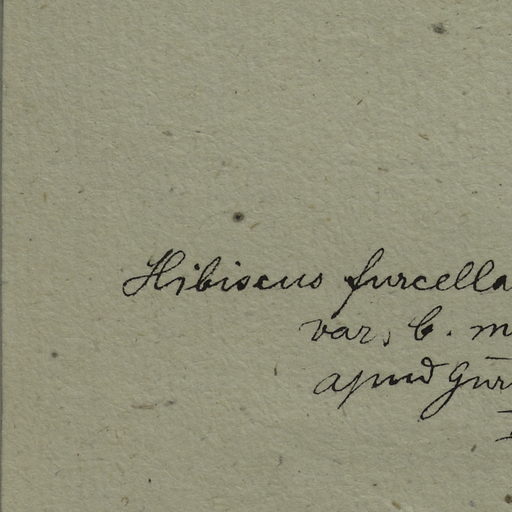 Hibiscus furcella
var. b. m
apud Gür